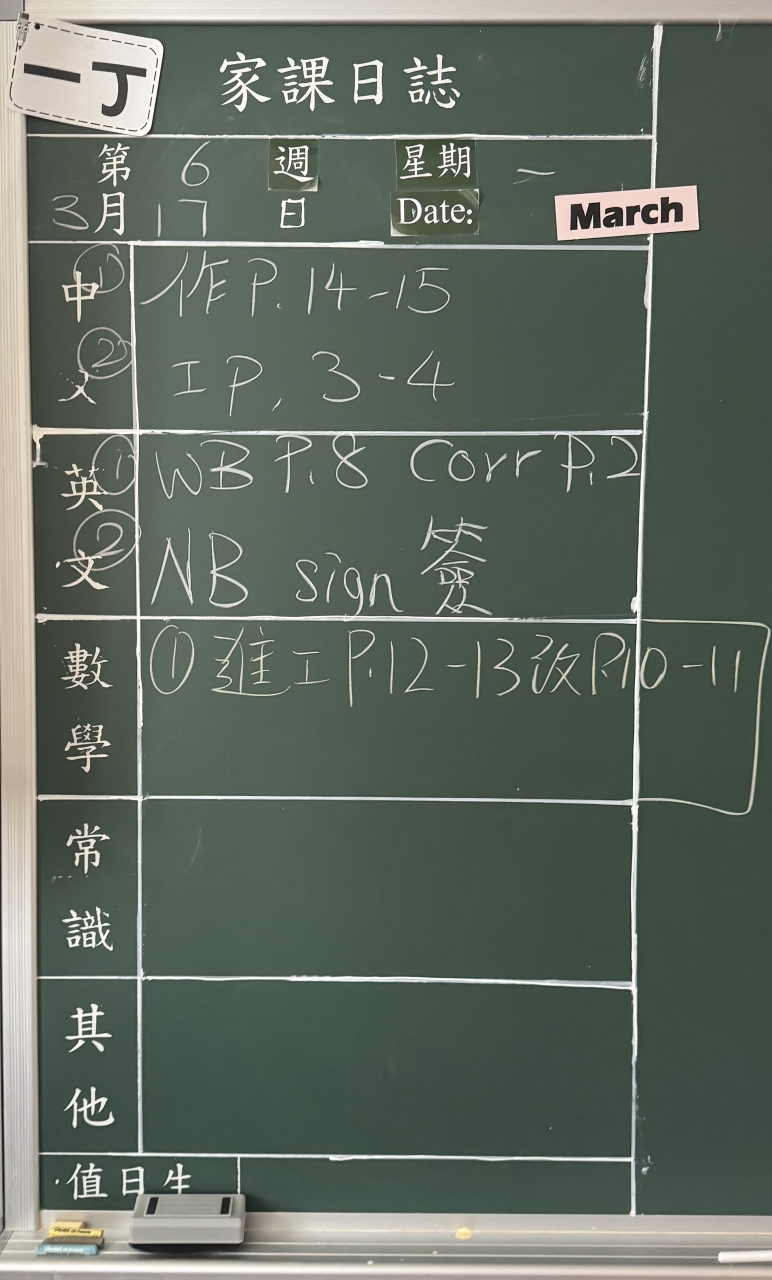 一丁
家課日誌
第 6 週 星期 一
3月 17 日 Date: March
中文
① 作 P.14-15
② 工 P. 3-4
英文
① WB P.8 Corr P.2
② NB sign 簽
數學
① 進工 P.12-13 改 P.10-11
常識
其他
值日生